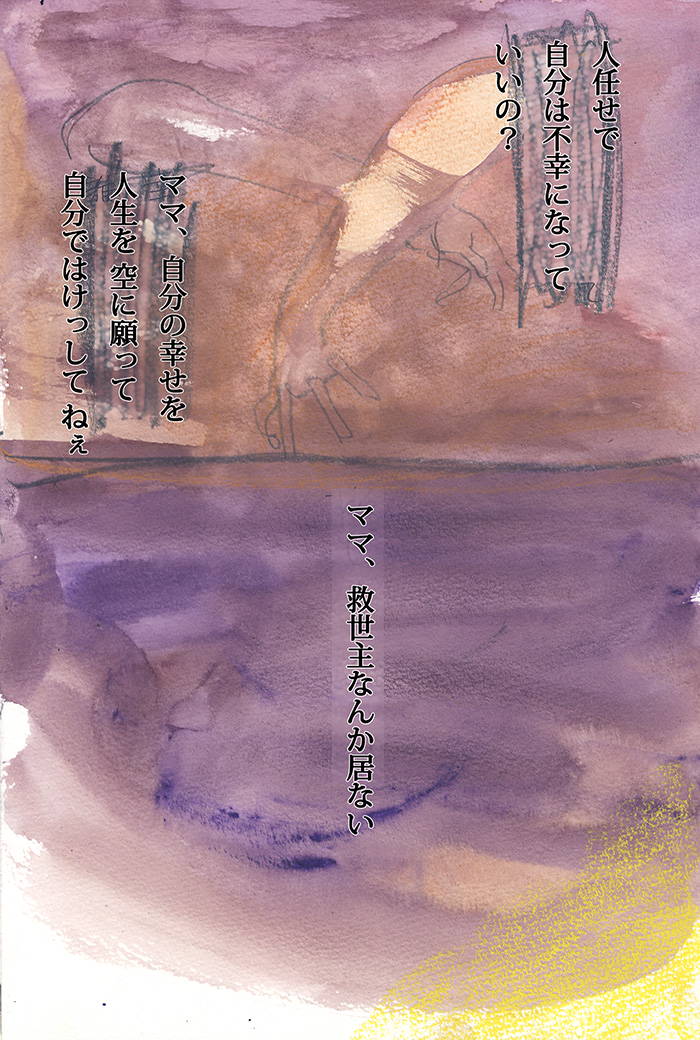 人任せで
自分は不幸になって
いいの?
ママ、自分の幸せを
人生を 空に願って
自分ではけっして ねぇ
ママ、救世主なんか居ない